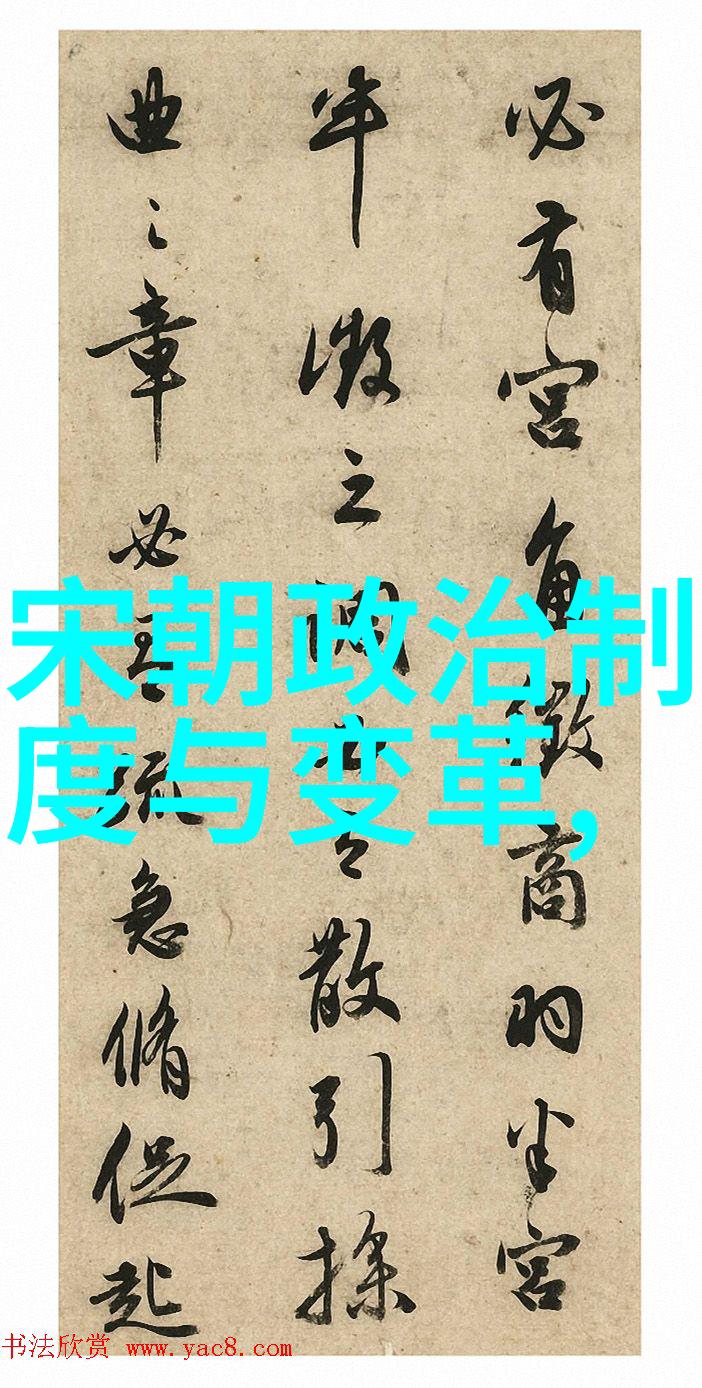 必有宫角徵商羽半宫
半徵之调之散引操
曲之章必疏急脩促起
宋朝政治制
度与变革,
书法欣赏 www.yac8.com